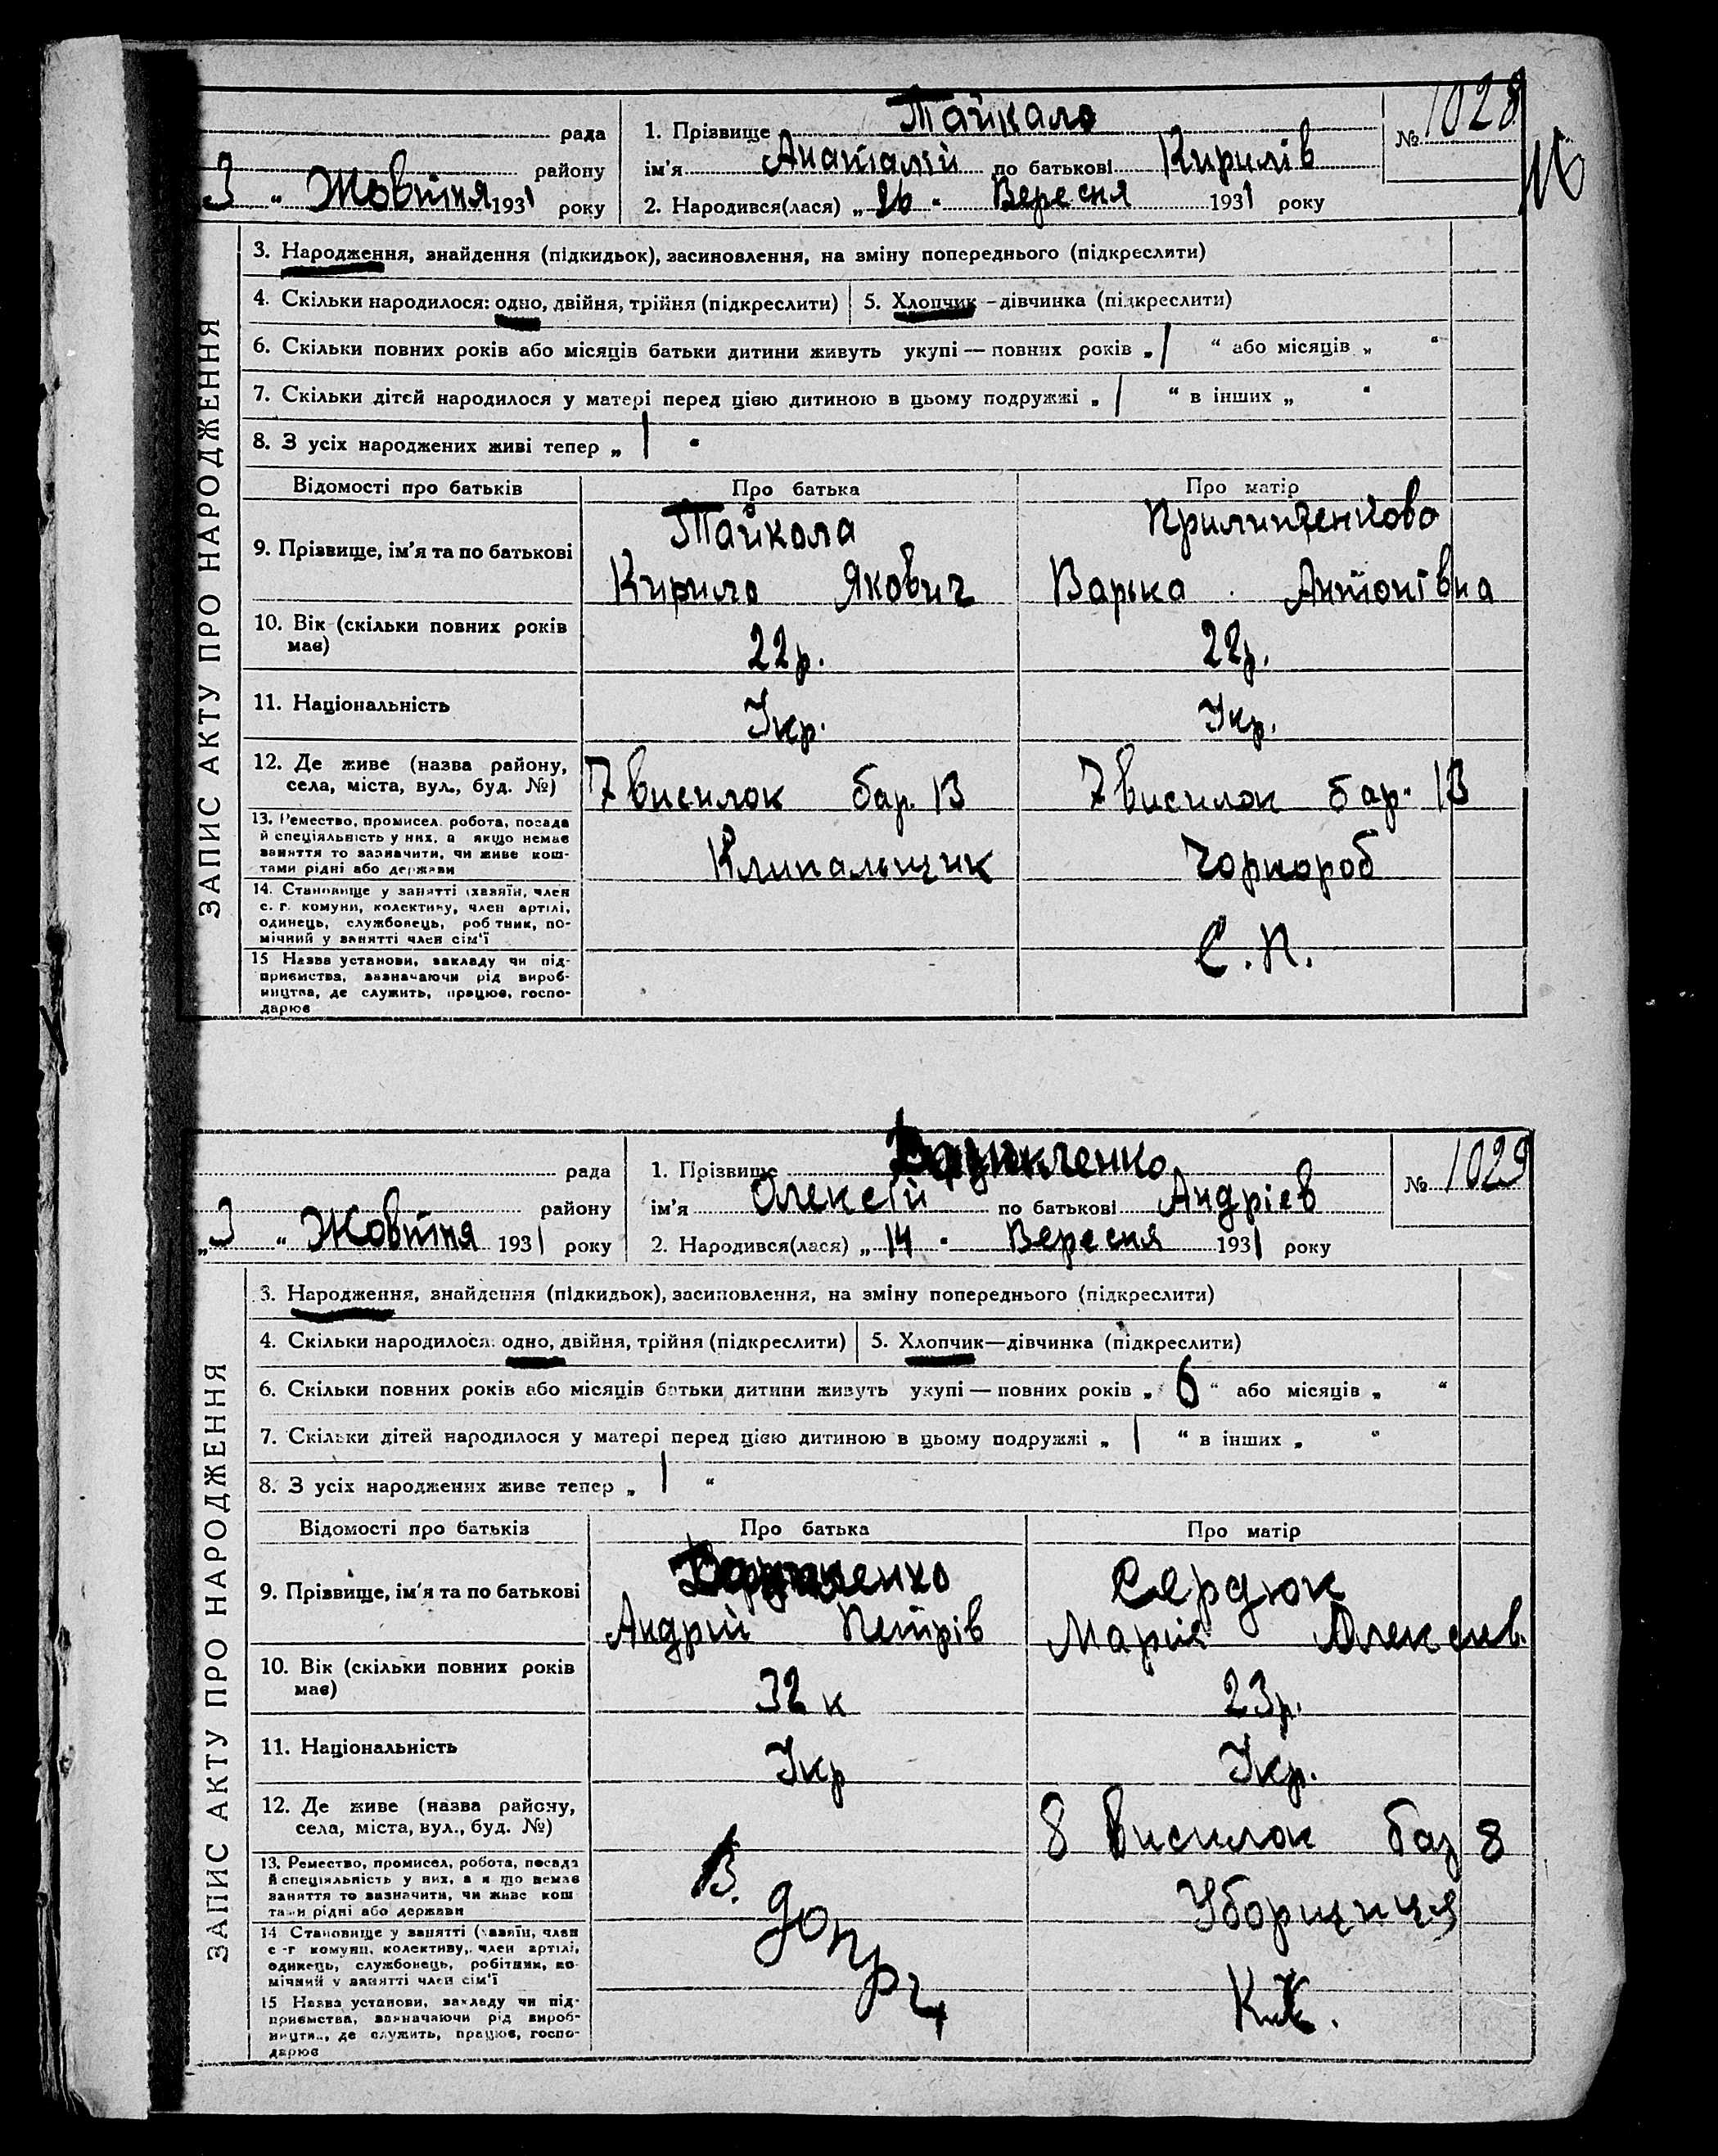 рада
1. Прізвище Тайкало
№ 1028
району
ім'я Анатолій по батькові Кирилів
3 " Жовтня 1931 року
2. Народився(лася) „ 26 " Вересня 1931 року
ЗАПИС АКТУ ПРО НАРОДЖЕННЯ
3. Народження, знайдення (підкидьок), засиновлення, на зміну попереднього (підкреслити)
4. Скільки народилося: одно, двійня, трійня (підкреслити) 5. Хлопчик – дівчинка (підкреслити)
6. Скільки повних років або місяців батьки дитини живуть укупі — повних років „ 1 “ або місяців „ “
7. Скільки дітей народилося у матері перед цією дитиною в цьому подружжі „ 1 “ в інших „ “
8. З усіх народжених живі тепер „ 1 “
Відомості про батьків Про батька Про матір
9. Прізвище, ім'я та по батькові
Тайкола
Кирило Якович
Варька Антонівна
10. Вік (скільки повних років має)
22р. 22р.
11. Національність Укр. Укр.
12. Де живе (назва району,
села, міста, вул., буд. №)
7 висилок бар. 13 7 висилок бар. 13
13. Ремество, промисел, робота, посада
й спеціяльність у них, а якщо немає
заняття то зазначити, чи живе кош-
тами рідні або держави
Клипальщик Чорнороб
14. Становище у занятті (хазяїн, член
с. г. комуни, колективу, член артілі,
одинець, службовець, робітник, по-
мічний у занятті член сім'ї
С.П.
15 Назва установи, закладу чи під-
приємства, зазначаючи рід вироб-
ництва, де служить, працює, госпо-
дарює
рада
1. Прізвище
№ 1029
району
ім'я Олексій по батькові Андріев
„ 3 " Жовтня 1931 року
2. Народився(лася) „ 14 " Вересня 1931 року
ЗАПИС АКТУ ПРО НАРОДЖЕННЯ
3. Народження, знайдення (підкидьок), засиновлення, на зміну попереднього (підкреслити)
4. Скільки народилося: одно, двійня, трійня (підкреслити) 5. Хлопчик—дівчинка (підкреслити)
6. Скільки повних років або місяців батьки дитини живуть укупі — повних років „ 6 “ або місяців „ “
7. Скільки дітей народилося у матері перед цією дитиною в цьому подружжі „ 1 “ в інших „ “
8. З усіх народжених живе тепер „ 1 “
Відомості про батьків Про батька Про матір
9. Прізвище, ім'я та по батькові
Сердюк
Андрій Петрів
Марія Олексіїв.
10. Вік (скільки повних років має)
32 23р.
11. Національність Укр Укр.
12. Де живе (назва району,
села, міста, вул., буд. №)
8 висилок 8
13. Ремество, промисел, робота, посада
й спеціяльність у них, а якщо немає
заняття то зазначити, чи живе кош
тами рідні або держави
В. допрі Уборщиця
14 Становище у занятті (хазяїн, член
с-г комуни, колективу, член артілі,
одинець, службовець, робітник, по-
мічний у занятті член сім'ї
15 Назва установи, закладу чи під-
приємства, зазначаючи рід вироб-
ництва, де служить, працює, госпо-
дарює